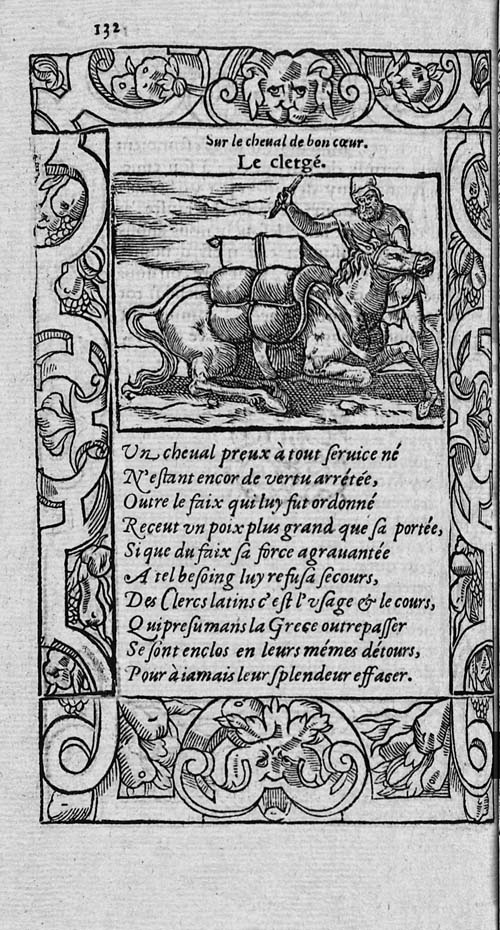 132
Sur le cheual de bon cœur.
Le clergé.
Un cheval preux à tout ſeruice né
N'eſtant encor de vertu arrétée,
Outre le faix qui luy fut ordonné
Receut vn poix plus grand que ſa portée,
Si que du faix ſa force agrauantée
A tel beſoing luy refuſa ſecours,
Des Clercs latins c'eſt l'vſage & le cours,
Qui preſumans la Grece outrepaſſer
Se ſont enclos en leurs mémes détours,
Pour à iamais leur ſplendeur effacer.